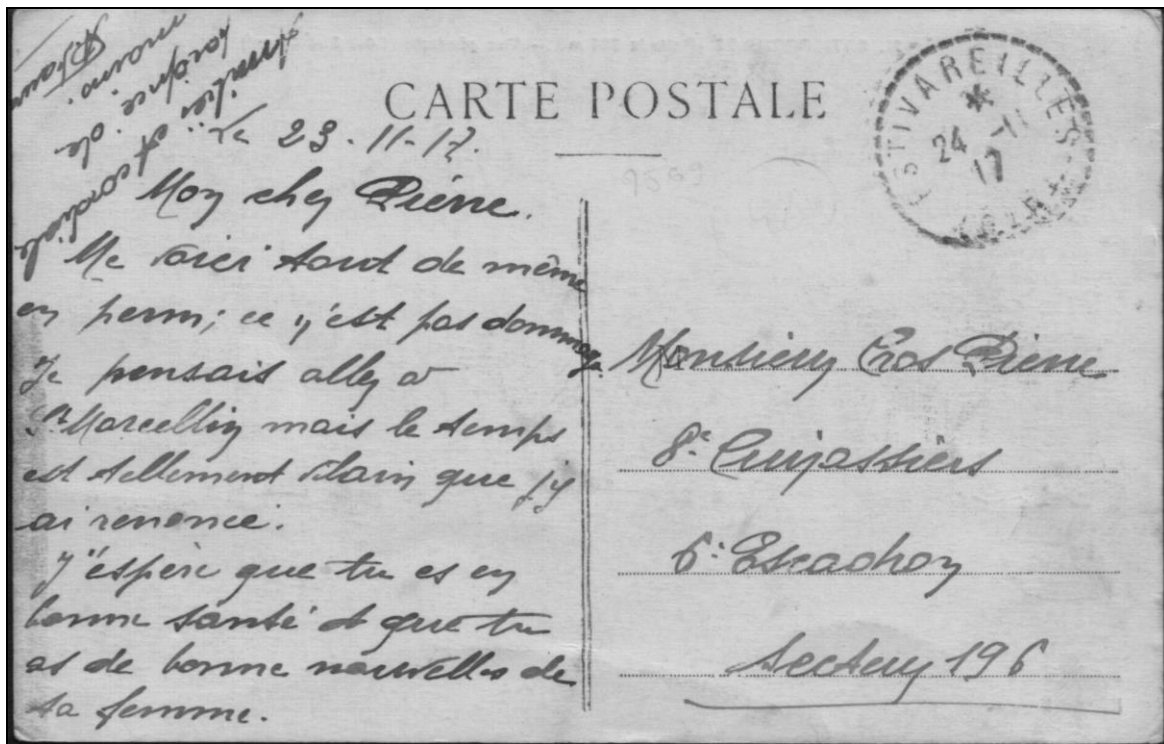 CARTE POSTALE
ESTIVAREILLES
24 -11
17
LOIRE
Le 23-11-17.
Mon cher Pierre.
Me voici tout de même
en perm; ce n'est pas dommage
Je pensais aller à
St Marcellin mais le temps
est tellement vilain que j'y
ai renoncé.
J'espère que tu es en
bonne santé et que tu
as de bonne nouvelles de
ta femme.
Amitiés et cordiale
poignée de
main.
Monsieur Cros Pierre
8e Cuirassiers
6e Escadron
Secteur 196